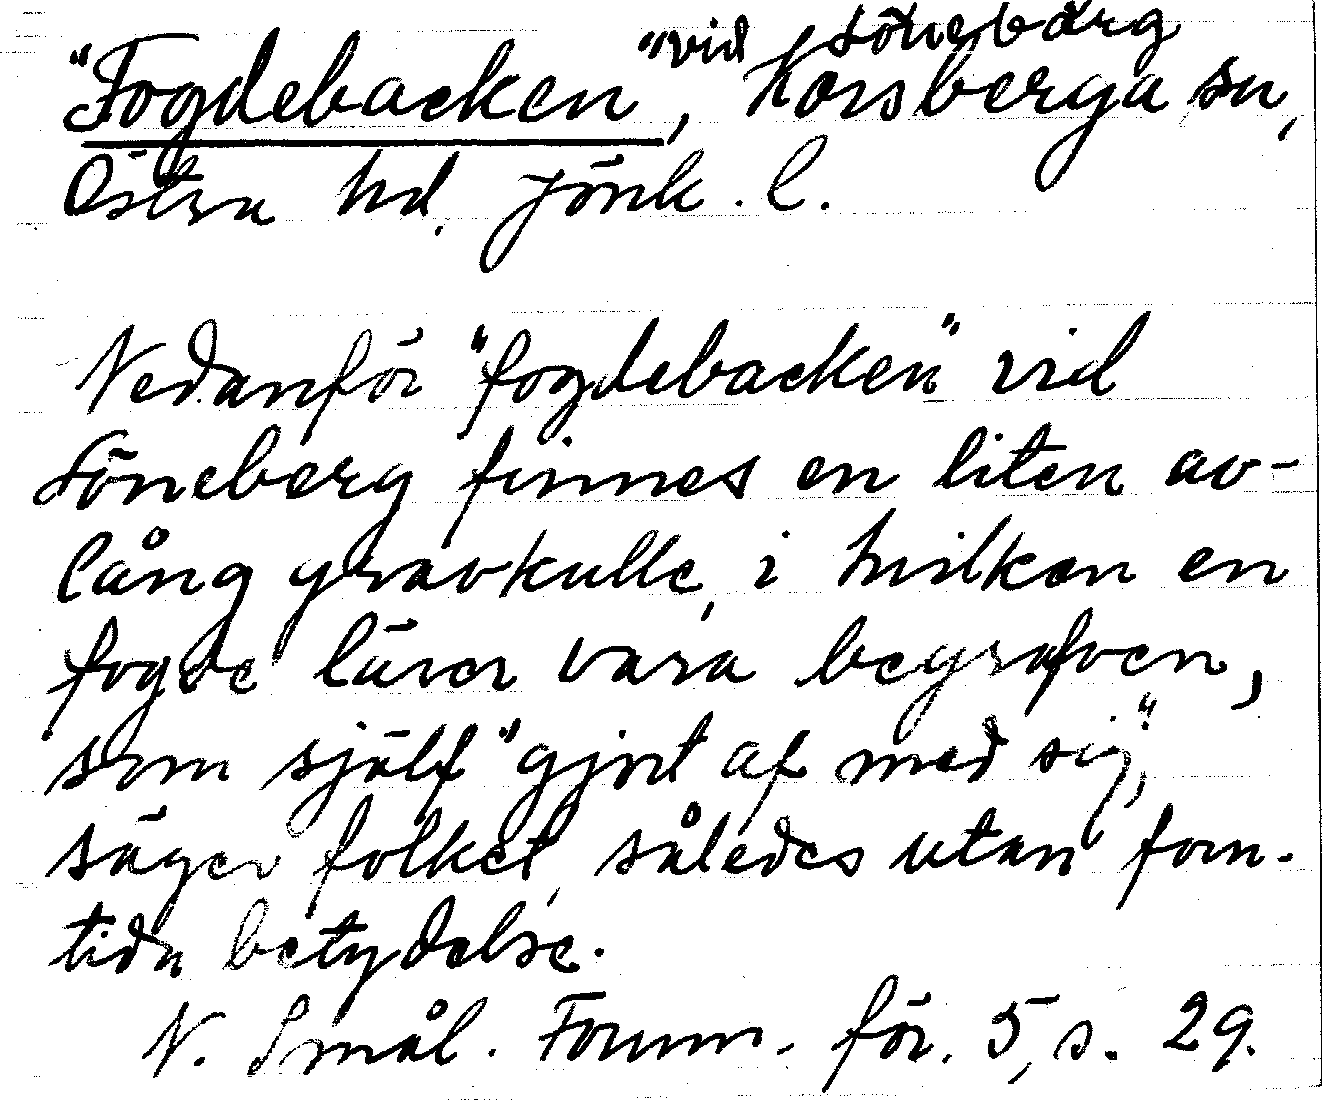 "Fogdebacken" vid Söneberg, Korsberga sn,
Östra hd, Jönk. l.
Nedanför "fogdebacken" vid
Söneberg finnes en liten av-
lång gravkulle, i hvilken en
fogde lärer vara begrafven,
som själf "gjort af med sig",
säger folket, således utan forn-
tida betydelse.
N. Smål. Fornm. för. 5, s. 29.